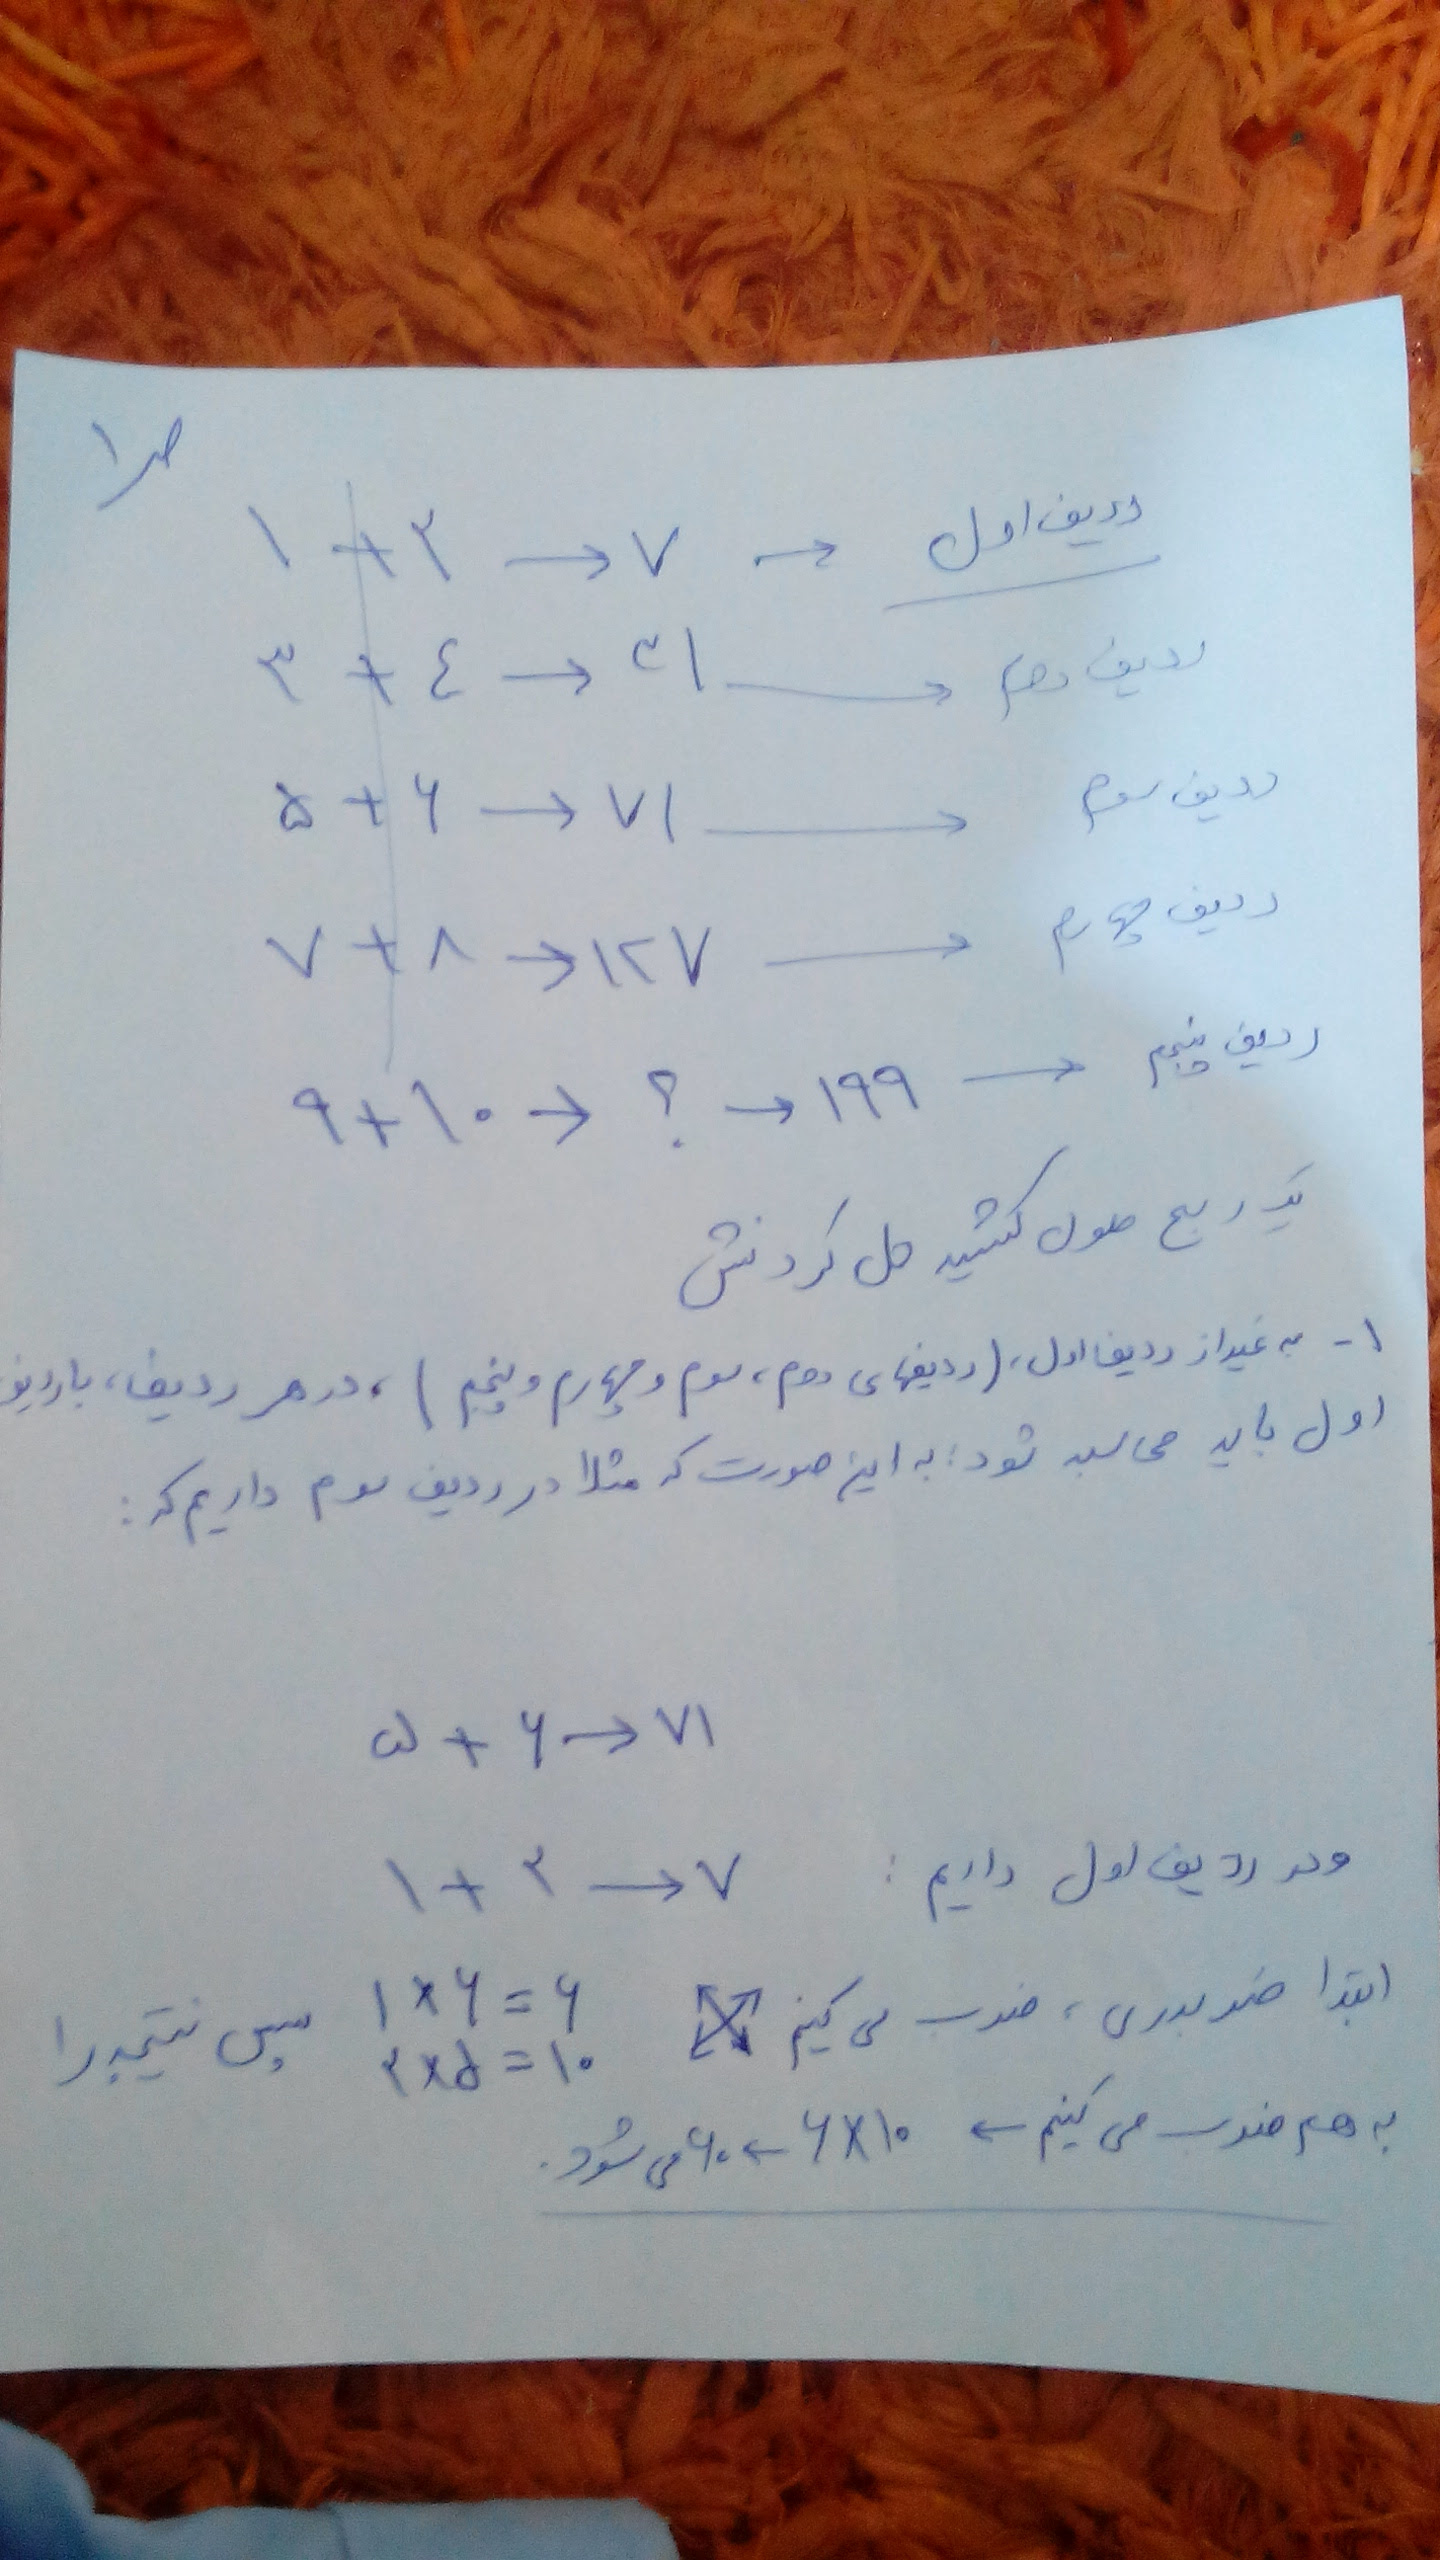 ص ۱
۱ + ۲ → ۷ → ردیف اول
۳ + ٤ → ۳۱ → ردیف دوم
۵ + ۶ → ۷۱ → ردیف سوم
۷ + ۸ → ۱۲۷ → ردیف چهارم
۹ + ۱۰ → ؟ → ۱۹۹ → ردیف پنجم
یک ربع طول کشید حل کردنش
۱- به غیر از ردیف اول، (ردیفهای دوم، سوم و چهارم و پنجم)، در هر ردیف، با ردیف
اول باید محاسبه شود؛ به این صورت که مثلا در ردیف سوم داریم که:
۵ + ۶ → ۷۱
و در ردیف اول داریم: ۱ + ۲ → ۷
ابتدا ضربدری، ضرب می کنیم ۱×۶=۶ سپس نتیجه را
۲×۵=۱۰
به هم ضرب می کنیم ← ۶×۱۰ ← ۶۰ می شود.